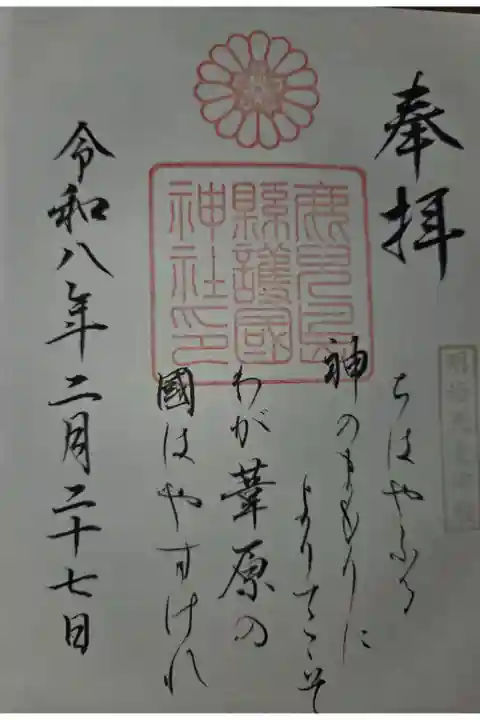 奉拝
明治天皇御製
鹿兒島
縣護國
神社印
ちはやふる
神のまもりに
よりてこそ
わが葦原の
國はやすけれ
令和八年二月二十七日